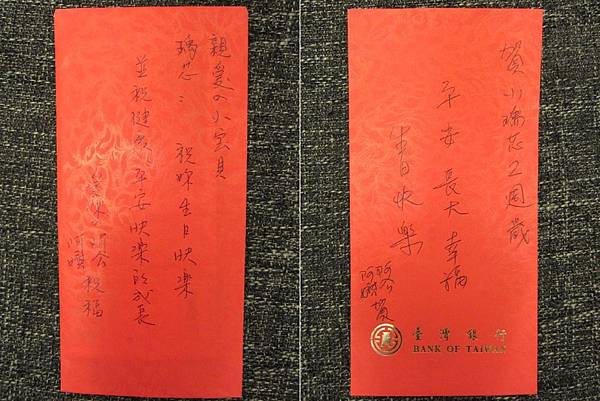 親愛の小宝貝
瑀芯：祝妳生日快樂
並祝健康平安快樂的成長
阿公
阿嬤
祝福
賀小瑀芯2週歲
平安長大幸福
生日快樂
阿公
阿嬤
賀
臺灣銀行
BANK OF TAIWAN